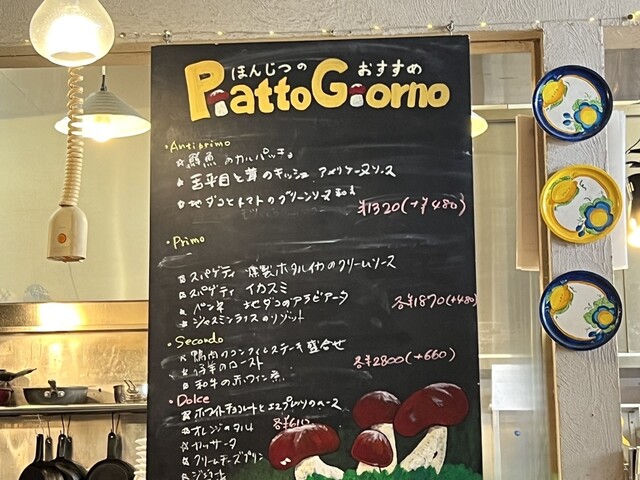 ほんじつの おすすめ
Piatto Giorno
・Antiprimo
☆ 鮮魚のカルパッチョ
★ 舌平目と茸のキッシュ アメリケーヌソース
☆ 地ダコとトマトのグリーンソース和え
¥1320(+¥480)
・Primo
スパゲティ 燻製ホタルイカのクリームソース
スパゲティ イカスミ
ペンネ 地ダコのアラビアータ
各¥1870(+480)
ジャスミンライスのリゾット
・Secondo
鴨肉のコンフィとステーキ盛合せ
仔羊のロースト
各¥2800(+660)
和牛の赤ワイン煮
・Dolce
ホワイトチョコレートとエスプレッソのムース
オレンジのタルト
カッサータ
クリームチーズプリン
ジェラート